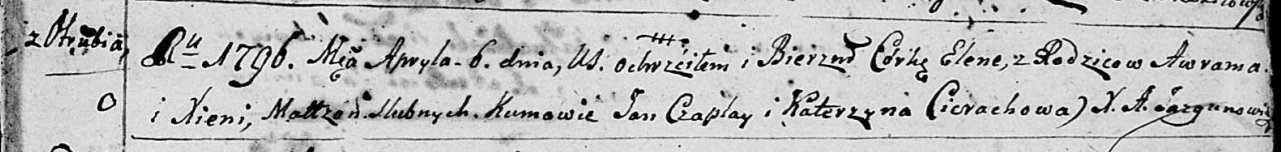 z Otrubia,
Ru 1796. Mca Apryla 6. dnia, US. ochrzciłem i Bierzmo Córkę Elene, z Rodzicow Awrama
i Nieni, Małżon. slubnych. Kumowie Jan Czaplay i Katerzyna Cierachowa) X. A. Jazgunowicz